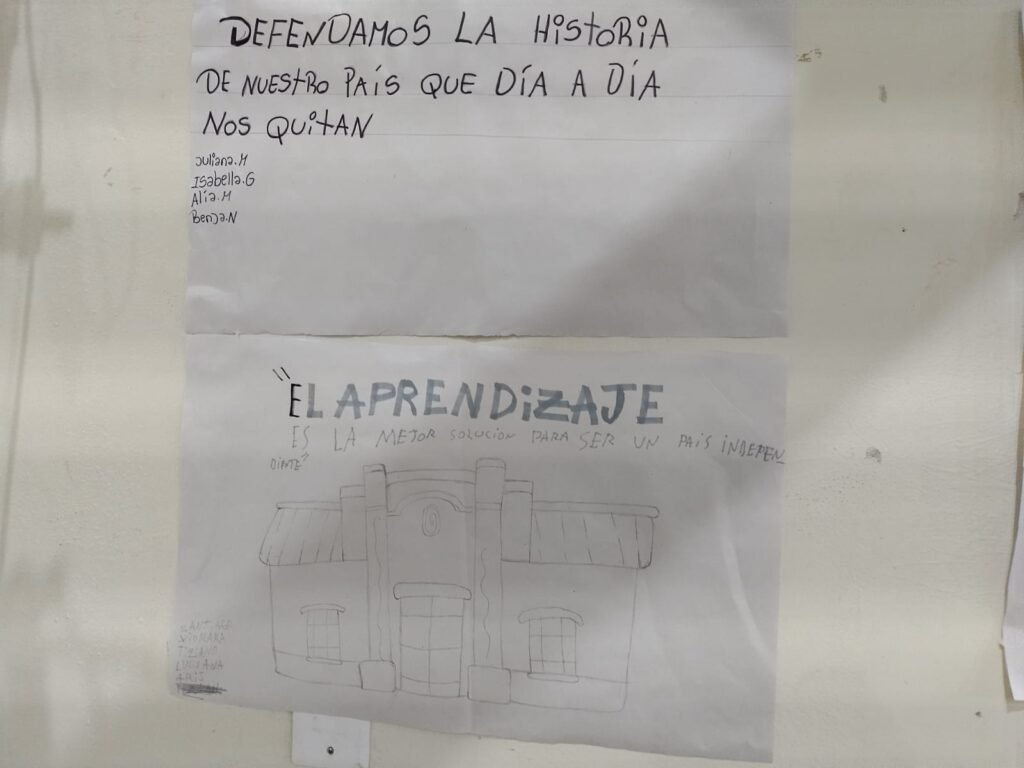 DEFENDAMOS LA HISTORIA
DE NUESTRO PAÍS QUE DÍA A DÍA
NOS QUITAN
Juliana.M
Isabella.G
Alia.M
Benja.N
"EL APRENDIZAJE
ES LA MEJOR SOLUCIÓN PARA SER UN PAIS INDEPEN
DIENTE"
XIOMARA
TIZIANO
LUCIANA